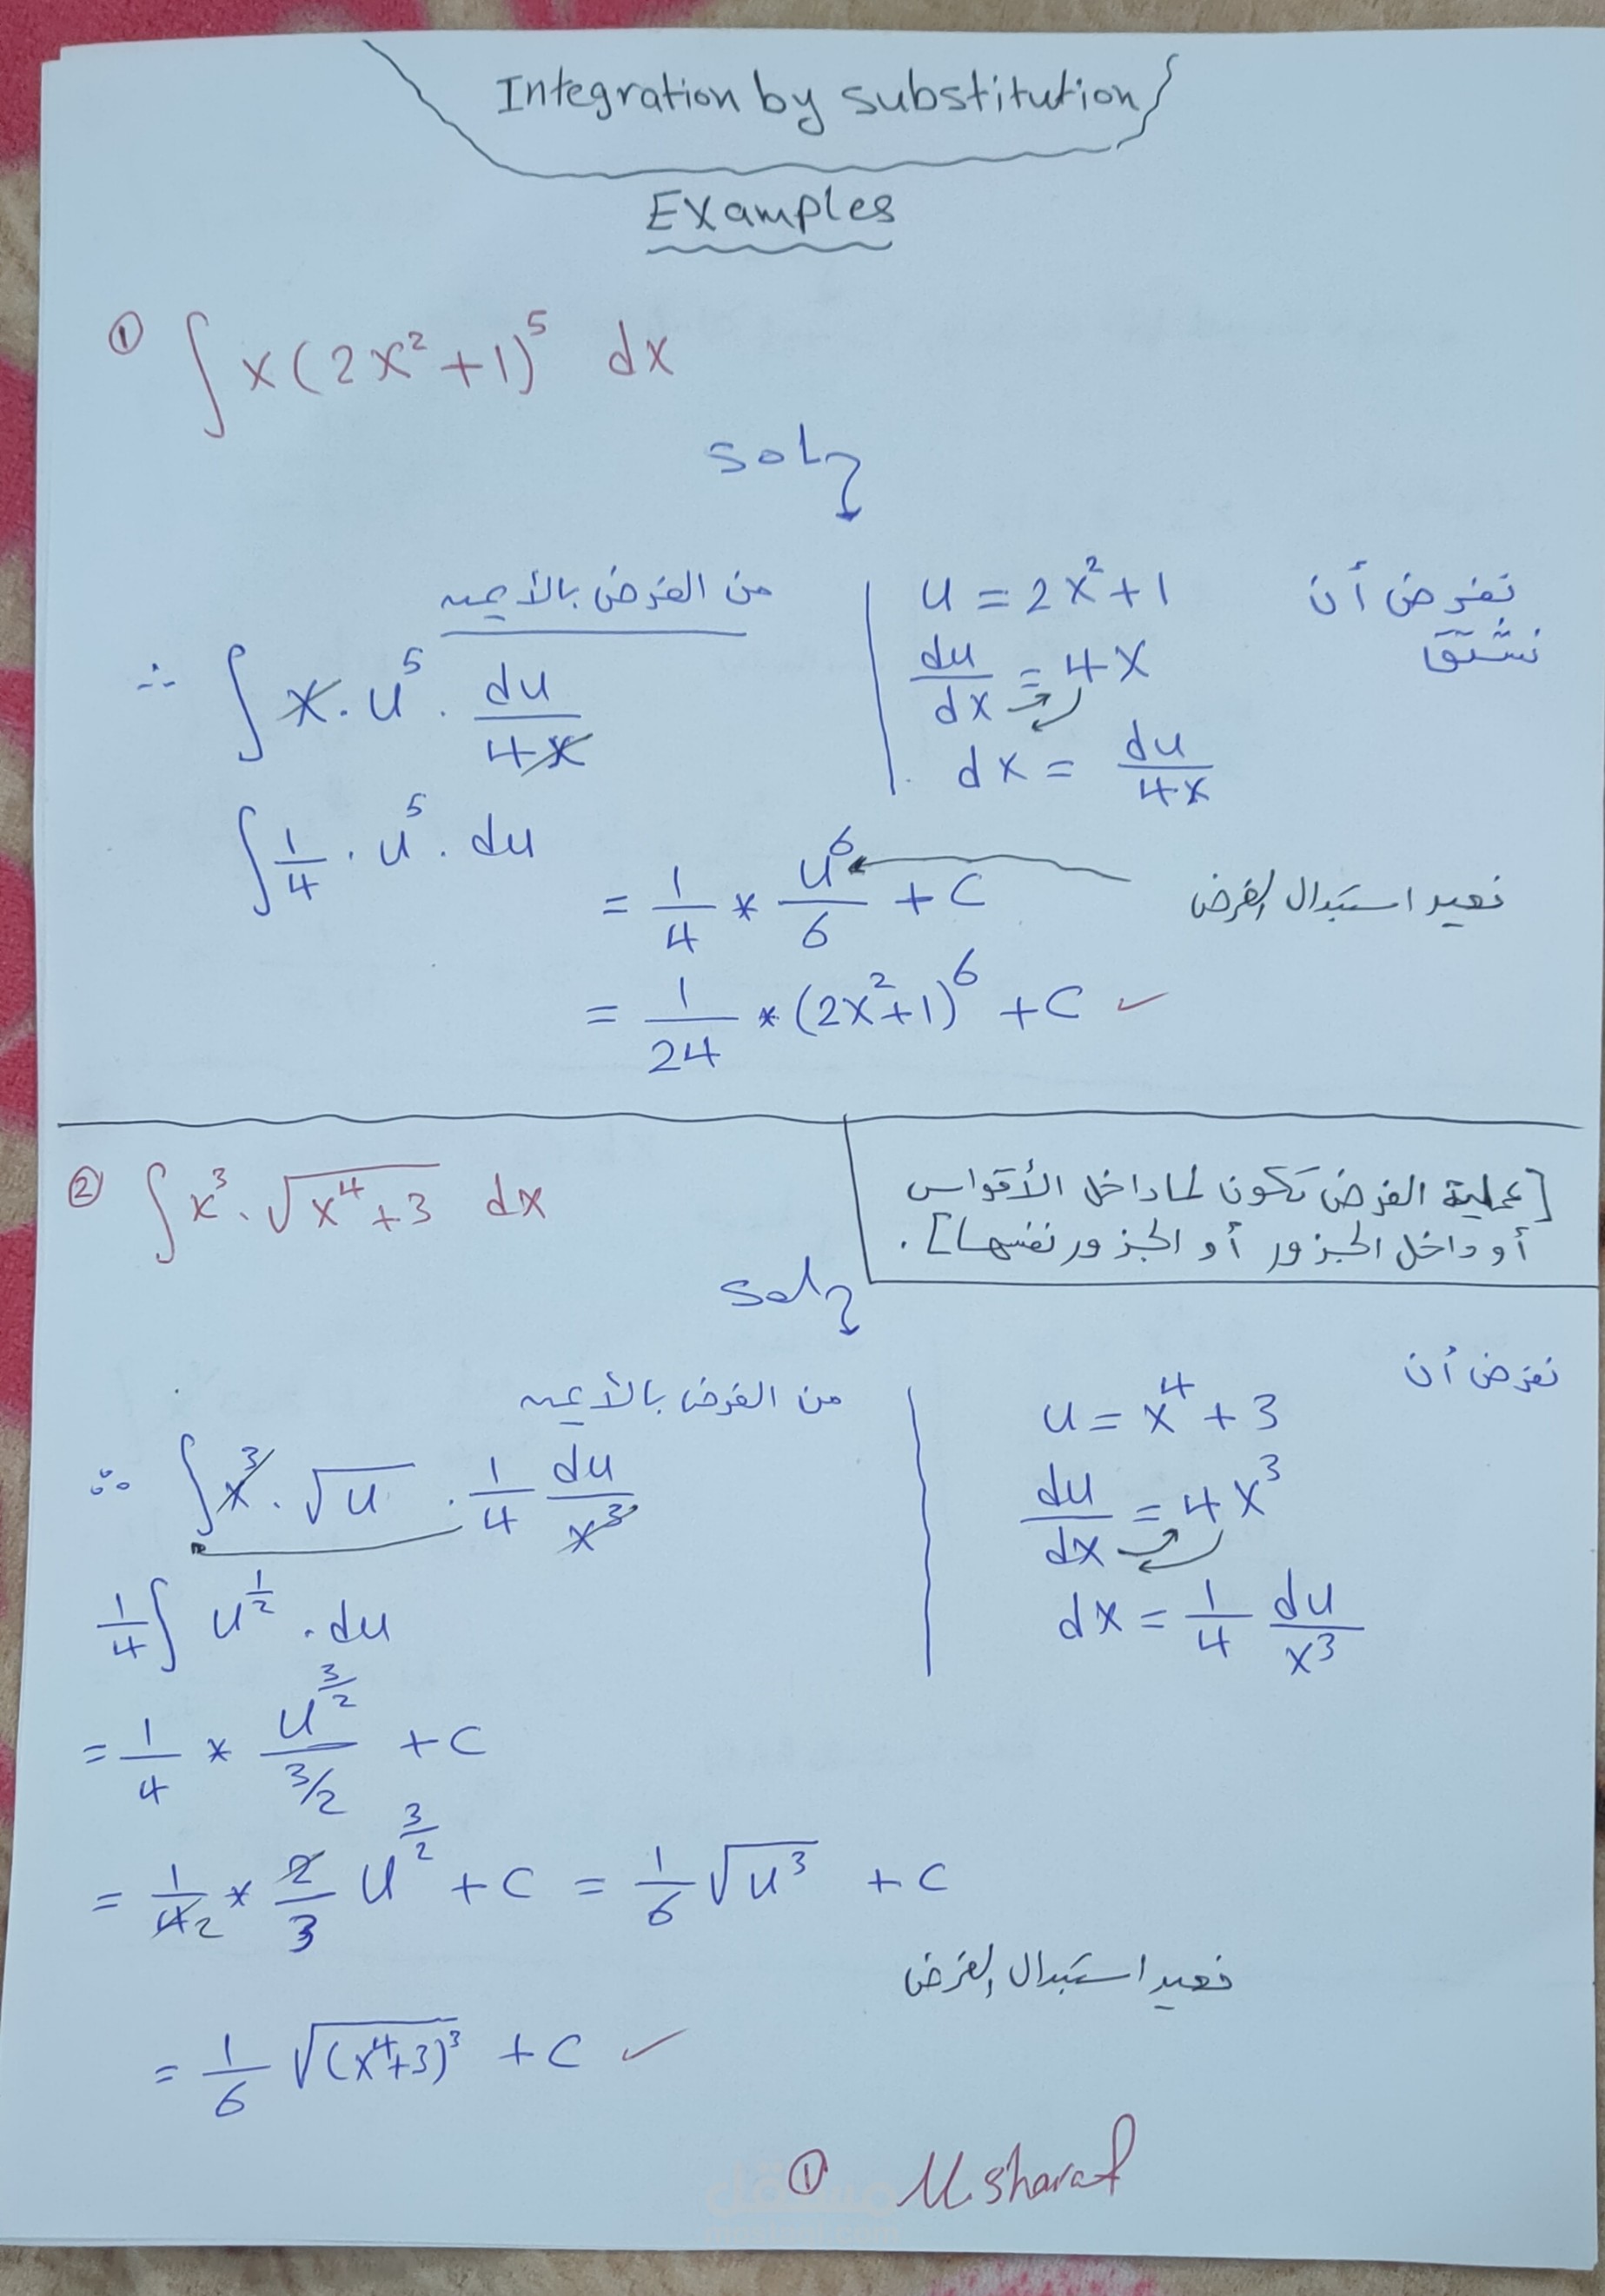 Integration by substitution
Examples
① ∫ x(2x²+1)⁵ dx
sol
نفرض أن u = 2x²+1
نشتق du/dx = 4x
dx = du/4x
من الفرض بالأعلى
∴ ∫ x . u⁵ . du/4x
∫ 1/4 . u⁵ . du
= 1/4 * u⁶/6 + c
نعيد استبدال الفرض
= 1/24 * (2x²+1)⁶ + c ✓
② ∫ x³ . √(x⁴+3) dx
[عملية الفرض تكون لما داخل الأقواس
أو داخل الجزور أو الجزور نفسها].
sol
نفرض أن u = x⁴ + 3
du/dx = 4x³
dx = 1/4 du/x³
من الفرض بالأعلى
∴ ∫ x³ . √u . 1/4 du/x³
1/4 ∫ u^(1/2) . du
= 1/4 * u^(3/2)/(3/2) + c
= 1/4 2 * 2/3 u^(3/2) + c = 1/6 √u³ + c
نعيد استبدال الفرض
= 1/6 √(x⁴+3)³ + c ✓
① M.sharaf
مستقل
mostaql.com